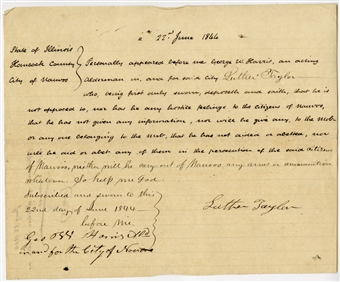 22d June 1844
State of Illinois
Hancock County
City of Nauvoo
Personally appeared before me George W. Harris, an acting
alderman in, and for said city Luther Taylor
who, being first duly sworn, deposeth and saith, that he is
not opposed to, nor has he any hostile feelings to the citizens of Nauvoo,
that he has not given any information, nor will he give any, to the mob
or any one belonging to the mob, that he has not aided or abetted, nor
will he aid or abet any of them in the persecution of the said citizens
of Nauvoo, neither will he carry out of Nauvoo any arms or ammunition
whatever. So help me God
Subscribed and sworn to this
22nd day of June 1844
before me
Geo W Harris
in and for the City of Nauvoo
Luther Taylor